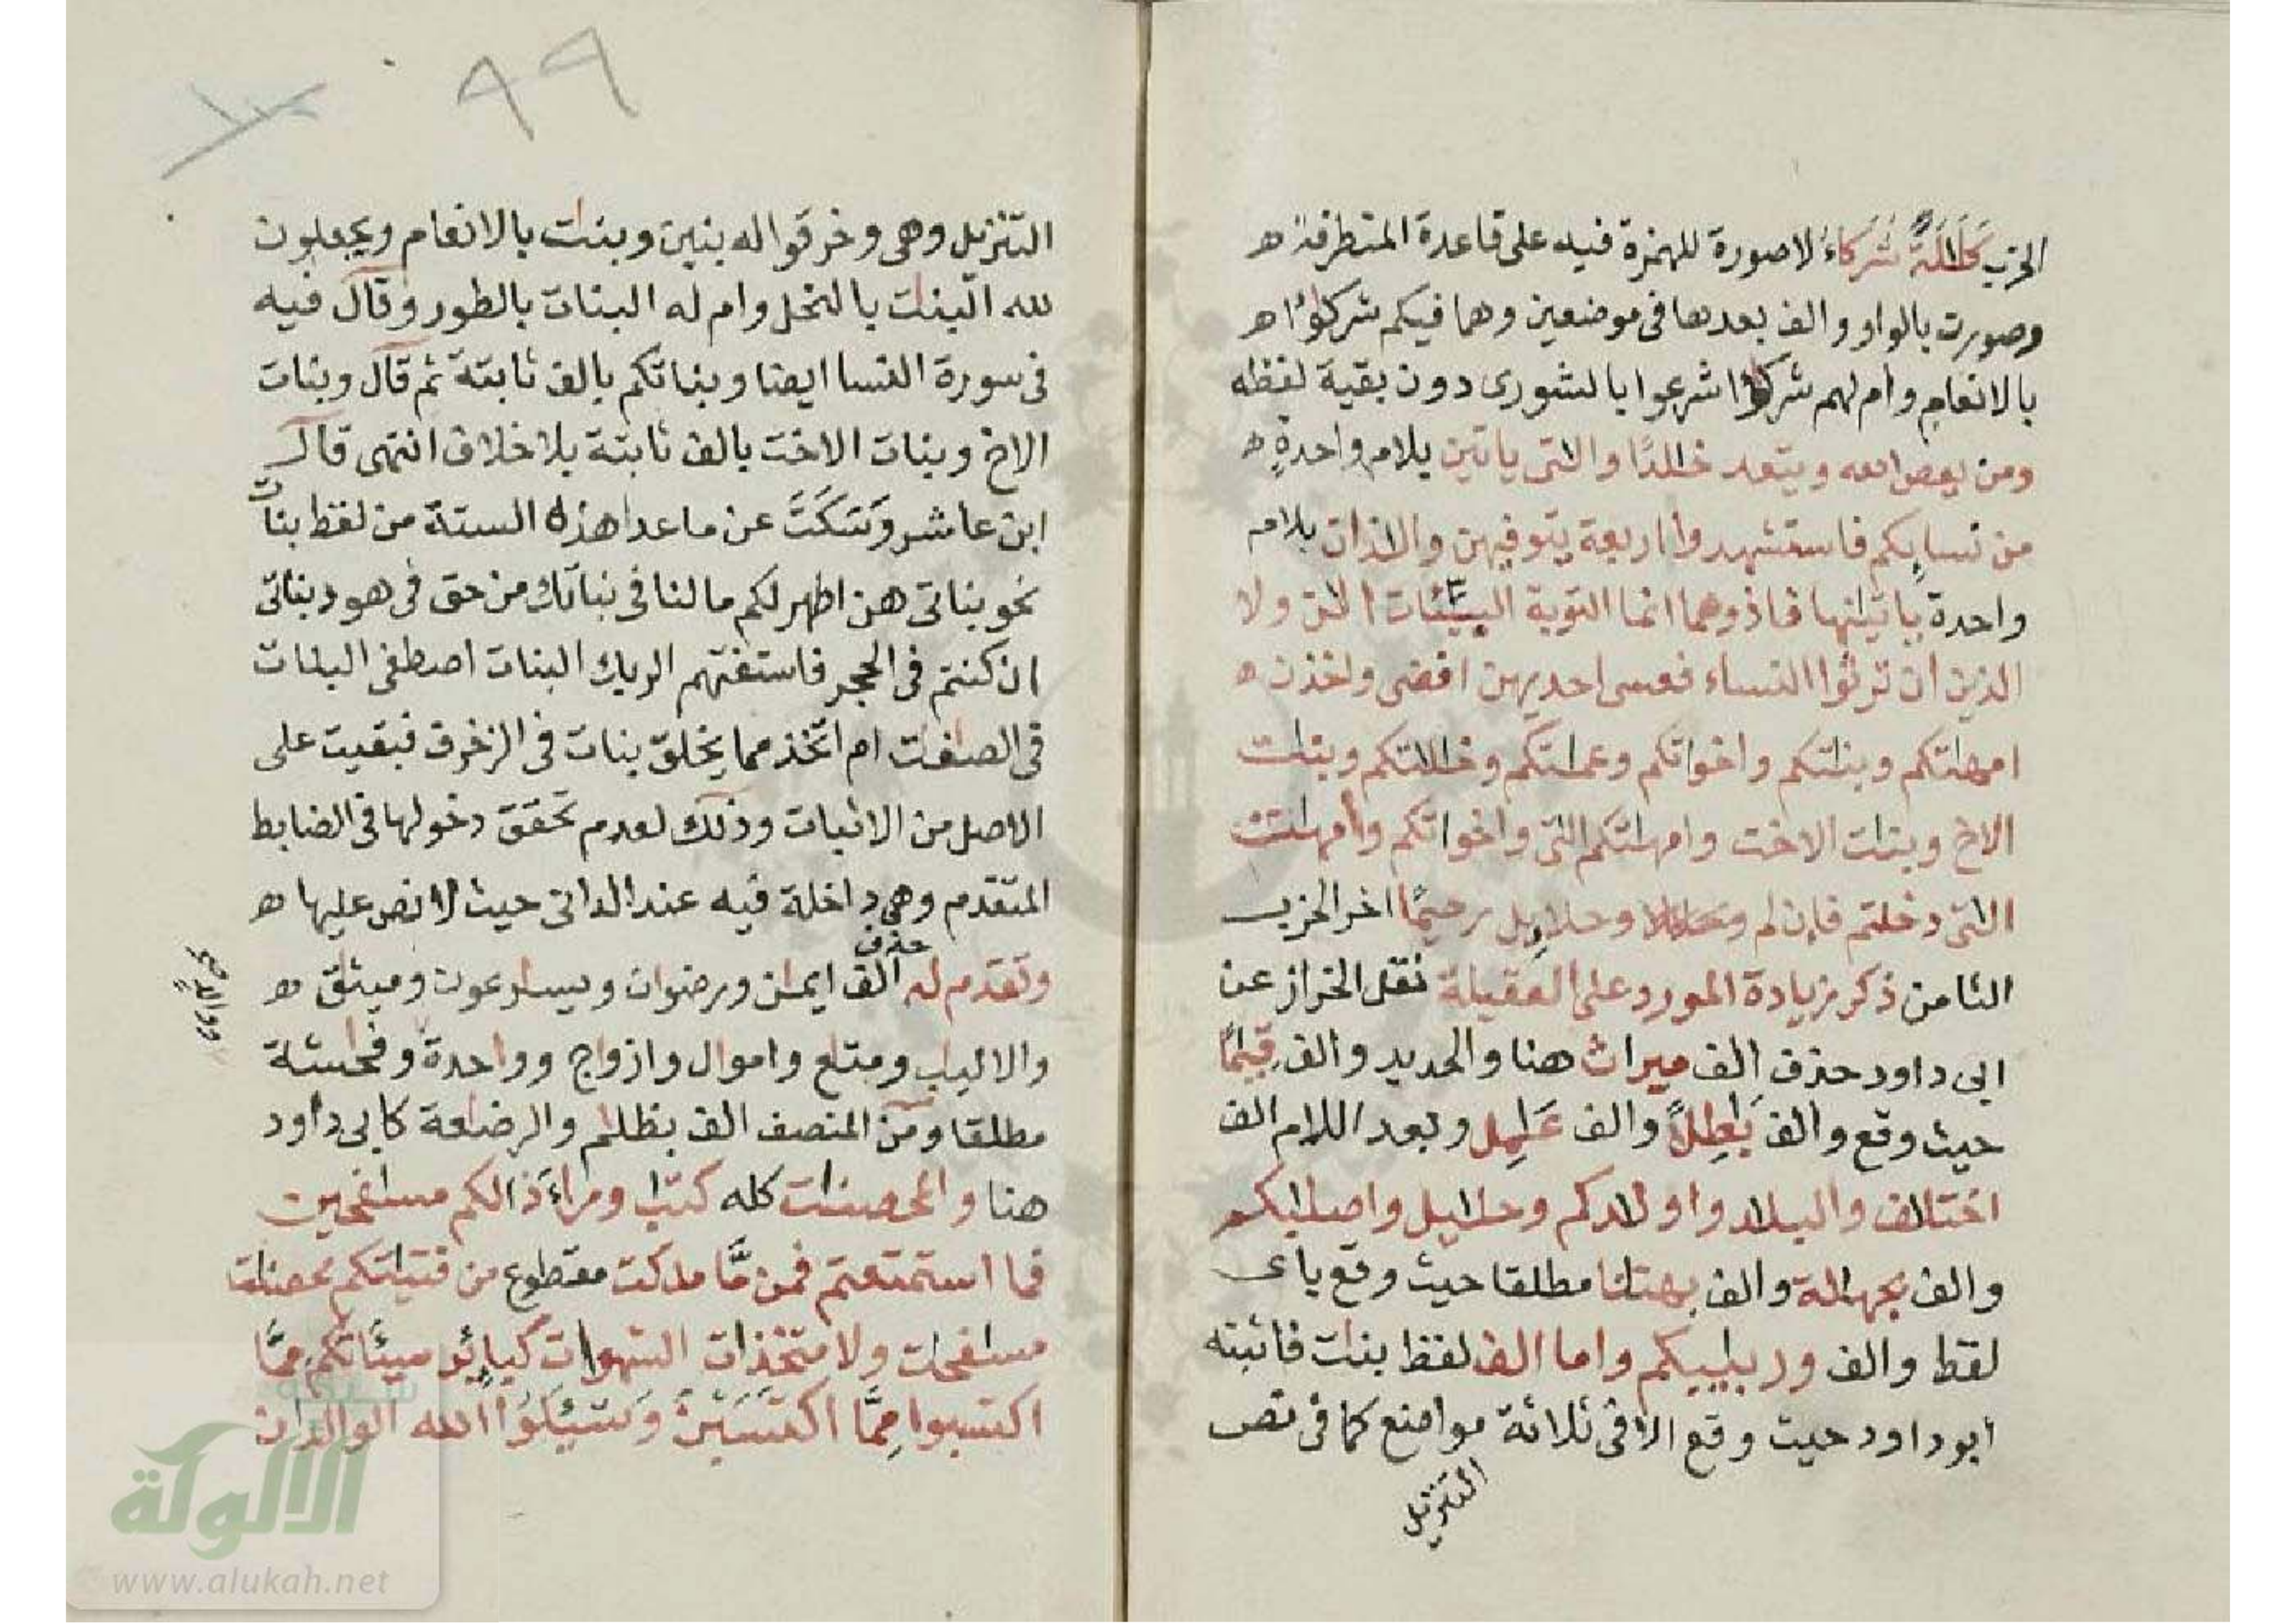 الحزب كَلَٰلَةً شُرَكاءُ لا صورة للهمزة فيه على قاعدة المتطرفة ه
وصورت بالواو والف بعدها في موضعين وهما فيكم شركوا ه
بالانعام وام لهم شركوا شرعوا بالشورى دون بقية لفظه
ومن يعص الله ويتعد خالدًا والتى ياتين بلام واحدةٍ ه
من نسايكم فاستشهدوا اربعة يتوفيهن والذان بلام
واحدة ياتينها فاذوهما انما التوبة السيئات الئن ولا
الذين ان ترثوا النساء فعسى احديهن افضى واخذن ه
امهتكم وبنتكم واخواتكم وعمتكم وخالتكم وبنت
الاخ وبنت الاخت وامهتكم التى واخواتكم وامهت
التى دخلتم فإن لم وحلايل رحيمًا اخر الحزب
الثامن ذكر زيادة المورد على العقيلة نقل الخراز عن
ابى داود حذف الف ميراث هنا والحديد والف قيمًا
حيث وقع والف بَٰطِلًا والف عَٰمِل وبعد اللام الف
اختلاف والبلاد واولادكم وحلايل واصلابكم
والف بجهالة والف بهتنا مطلقا حيث وقع باى
لفظ والف وربيبكم واما الف لفظ بنت فاثبته
أبو داود حيث وقع الا فى ثلاثة مواضع كما فى نص
التنزيل
٩٩
التنزيل وهى وخرقوا له بنين وبنت بالانعام ويجعلون
لله البنت بالنحل وام له البنات بالطور وقال فيه
فى سورة النسا ايضا وبناتكم بالف ثابتة ثم قال وبنات
الاخ وبنات الاخت بالف ثابتة بلا خلاف انتهى قال
ابن عاشر وَسَكَتَ عن ما عدا هذه الستة من لفظ بنات
نحو بناتى هن اطهر لكم ما لنا فى بناتك من حق فى هود بناتى
ان كنتم فى الحجر فاستفتهم الربك البنات اصطفى البنات
فى الصفت ام اتخذ مما يخلق بنات فى الزخرف فبقيت على
الاصل من الاثبات وذلك لعدم تحقق دخولها فى الضابط
المتقدم وهى داخلة فيه عند الدانى حيث لا نص عليها ه
وتقدم له حذف الف ايمن ورضوان ويسارعون وميثق ه
والالبب ومتع واموال وازواج وواحدة وفحشة
مطلقا ومن المنصف الف يظلم والرضعة كابى داود
هنا والمحصنت كله كتب وراءَ ذالكم مسفحين
فما استمتعتم فمن مَّا ملكت مقطوع من فتيتكم محصنت
مسفحت ولا متخذات الشهوات كبايٕر سيئاتكم ممَّا
اكتسبوا مِمَّا اكتسَبْنَ وَسْئَلوُا الله الوالدان
الألوكة
www.alukah.net